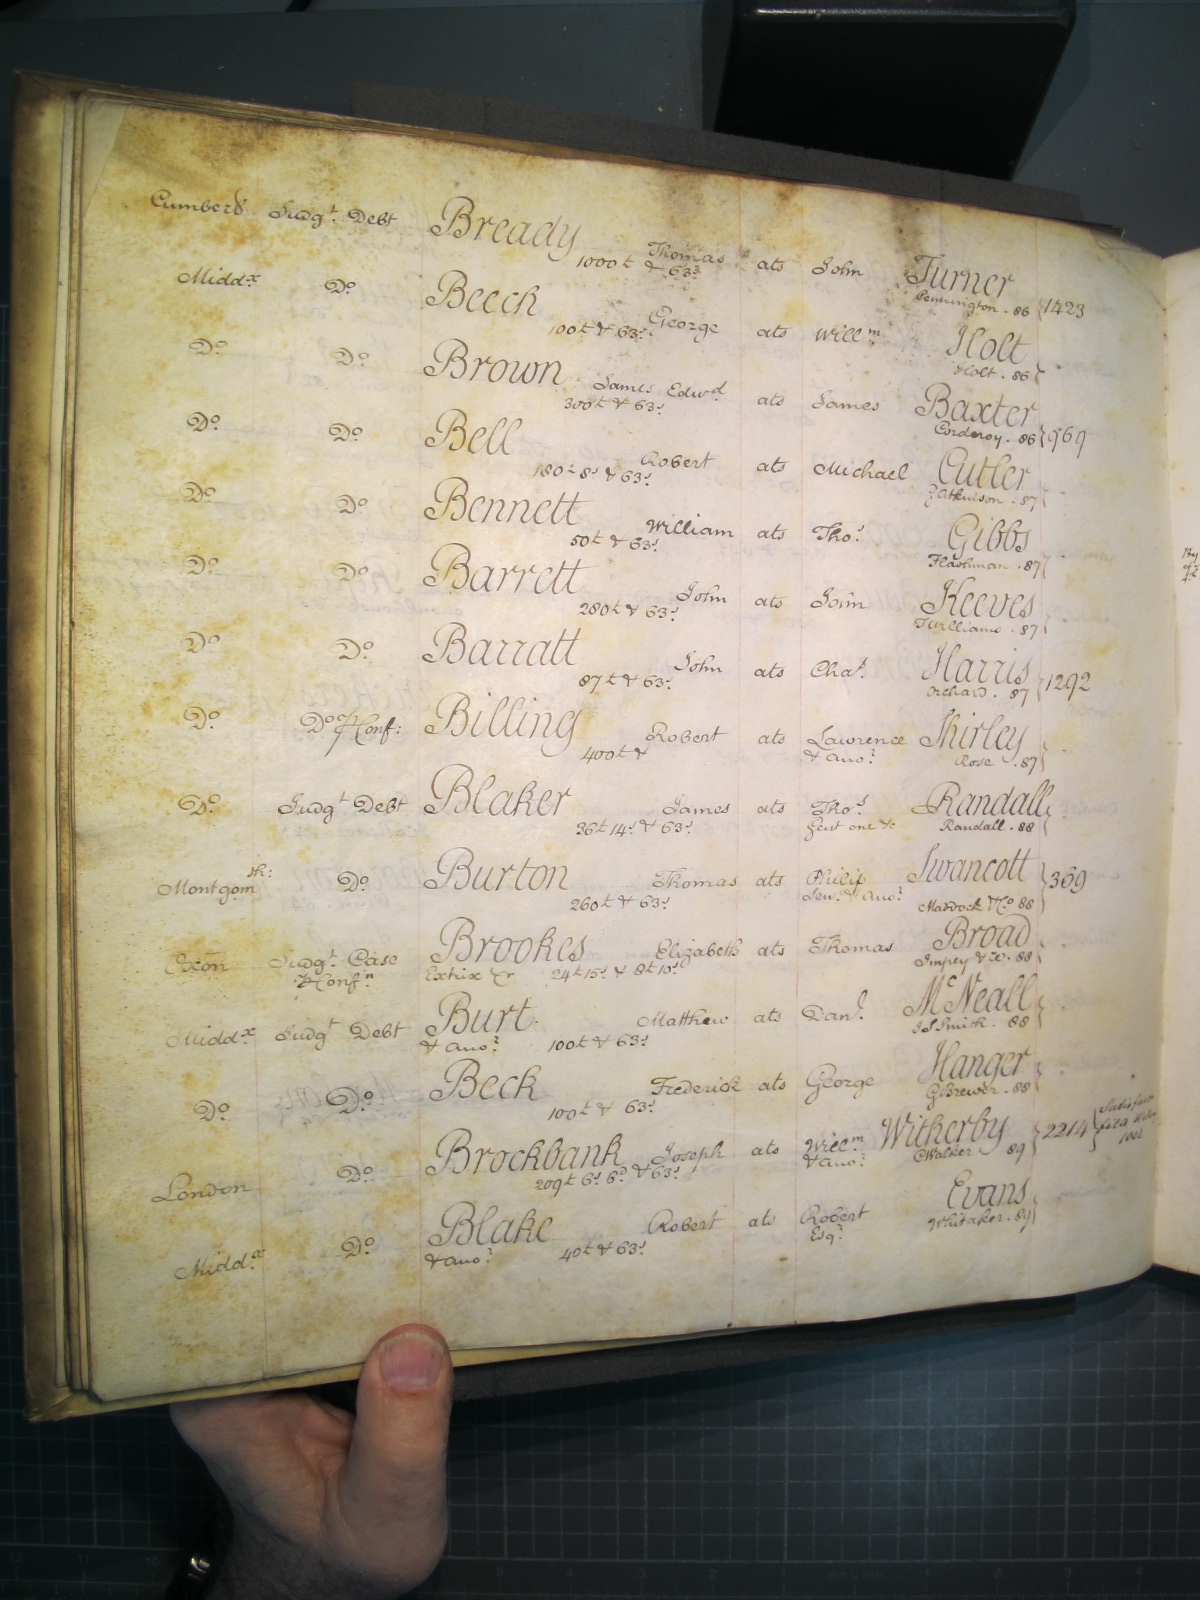 Cumberd Judgt. Debt Bready Thomas ats John Turner
1000£ & 63s. Pennington . 86 1423
Middx. Do. Beech George ats Willm. Holt
100£ & 63s. Holt . 86
Do. Do. Brown James Edwd. ats James Baxter
300£ & 63s. Corderoy . 86 969
Do. Do. Bell Robert ats Michael Cutler
180£ 8s. & 63s. Atkinson . 87
Do. Do. Bennett William ats Thos. Gibbs
50£ & 63s. Flashman . 87
Do. Do. Barrett John ats John Keeves
280£ & 63s. Twilliams . 87
Do. Do. Barratt John ats Chas. Harris
87£ & 63s. Orchard . 87 1292
Do. Do. & Conf: Billing Robert ats Lawrence Shirley
400£ & & anor. Rose . 87
Do. Judgt. Debt Blaker James ats Thos. Randall
36£ 14s. & 63s. Gent one &c Randall . 88
Montgomsh: Do. Burton Thomas ats Philip Swancott
260£ & 63s. Senr. & anor. Maddock & Co. 88 369
Devon Judgt. Case Brookes Elizabeth ats Thomas Broad
& Confn. Extrix &r 24£ 15s. & 8£ 10s. Impey & W. 88
Middx. Judgt. Debt Burt Matthew ats Danl. McNeall
& anor. 100£ & 63s. JS Smith . 88
Do. Do. Beck Frederick ats George Hanger
100£ & 63s. G Brewer . 88
London Do. Brockbank Joseph ats Willm. Witherby
209£ 6s. 6d. & 63s. & anor. C Walker 89 2214
Middx. Do. Blake Robert ats Robert Evans
& anor. 40£ & 63s. Esqr. Whitaker . 89